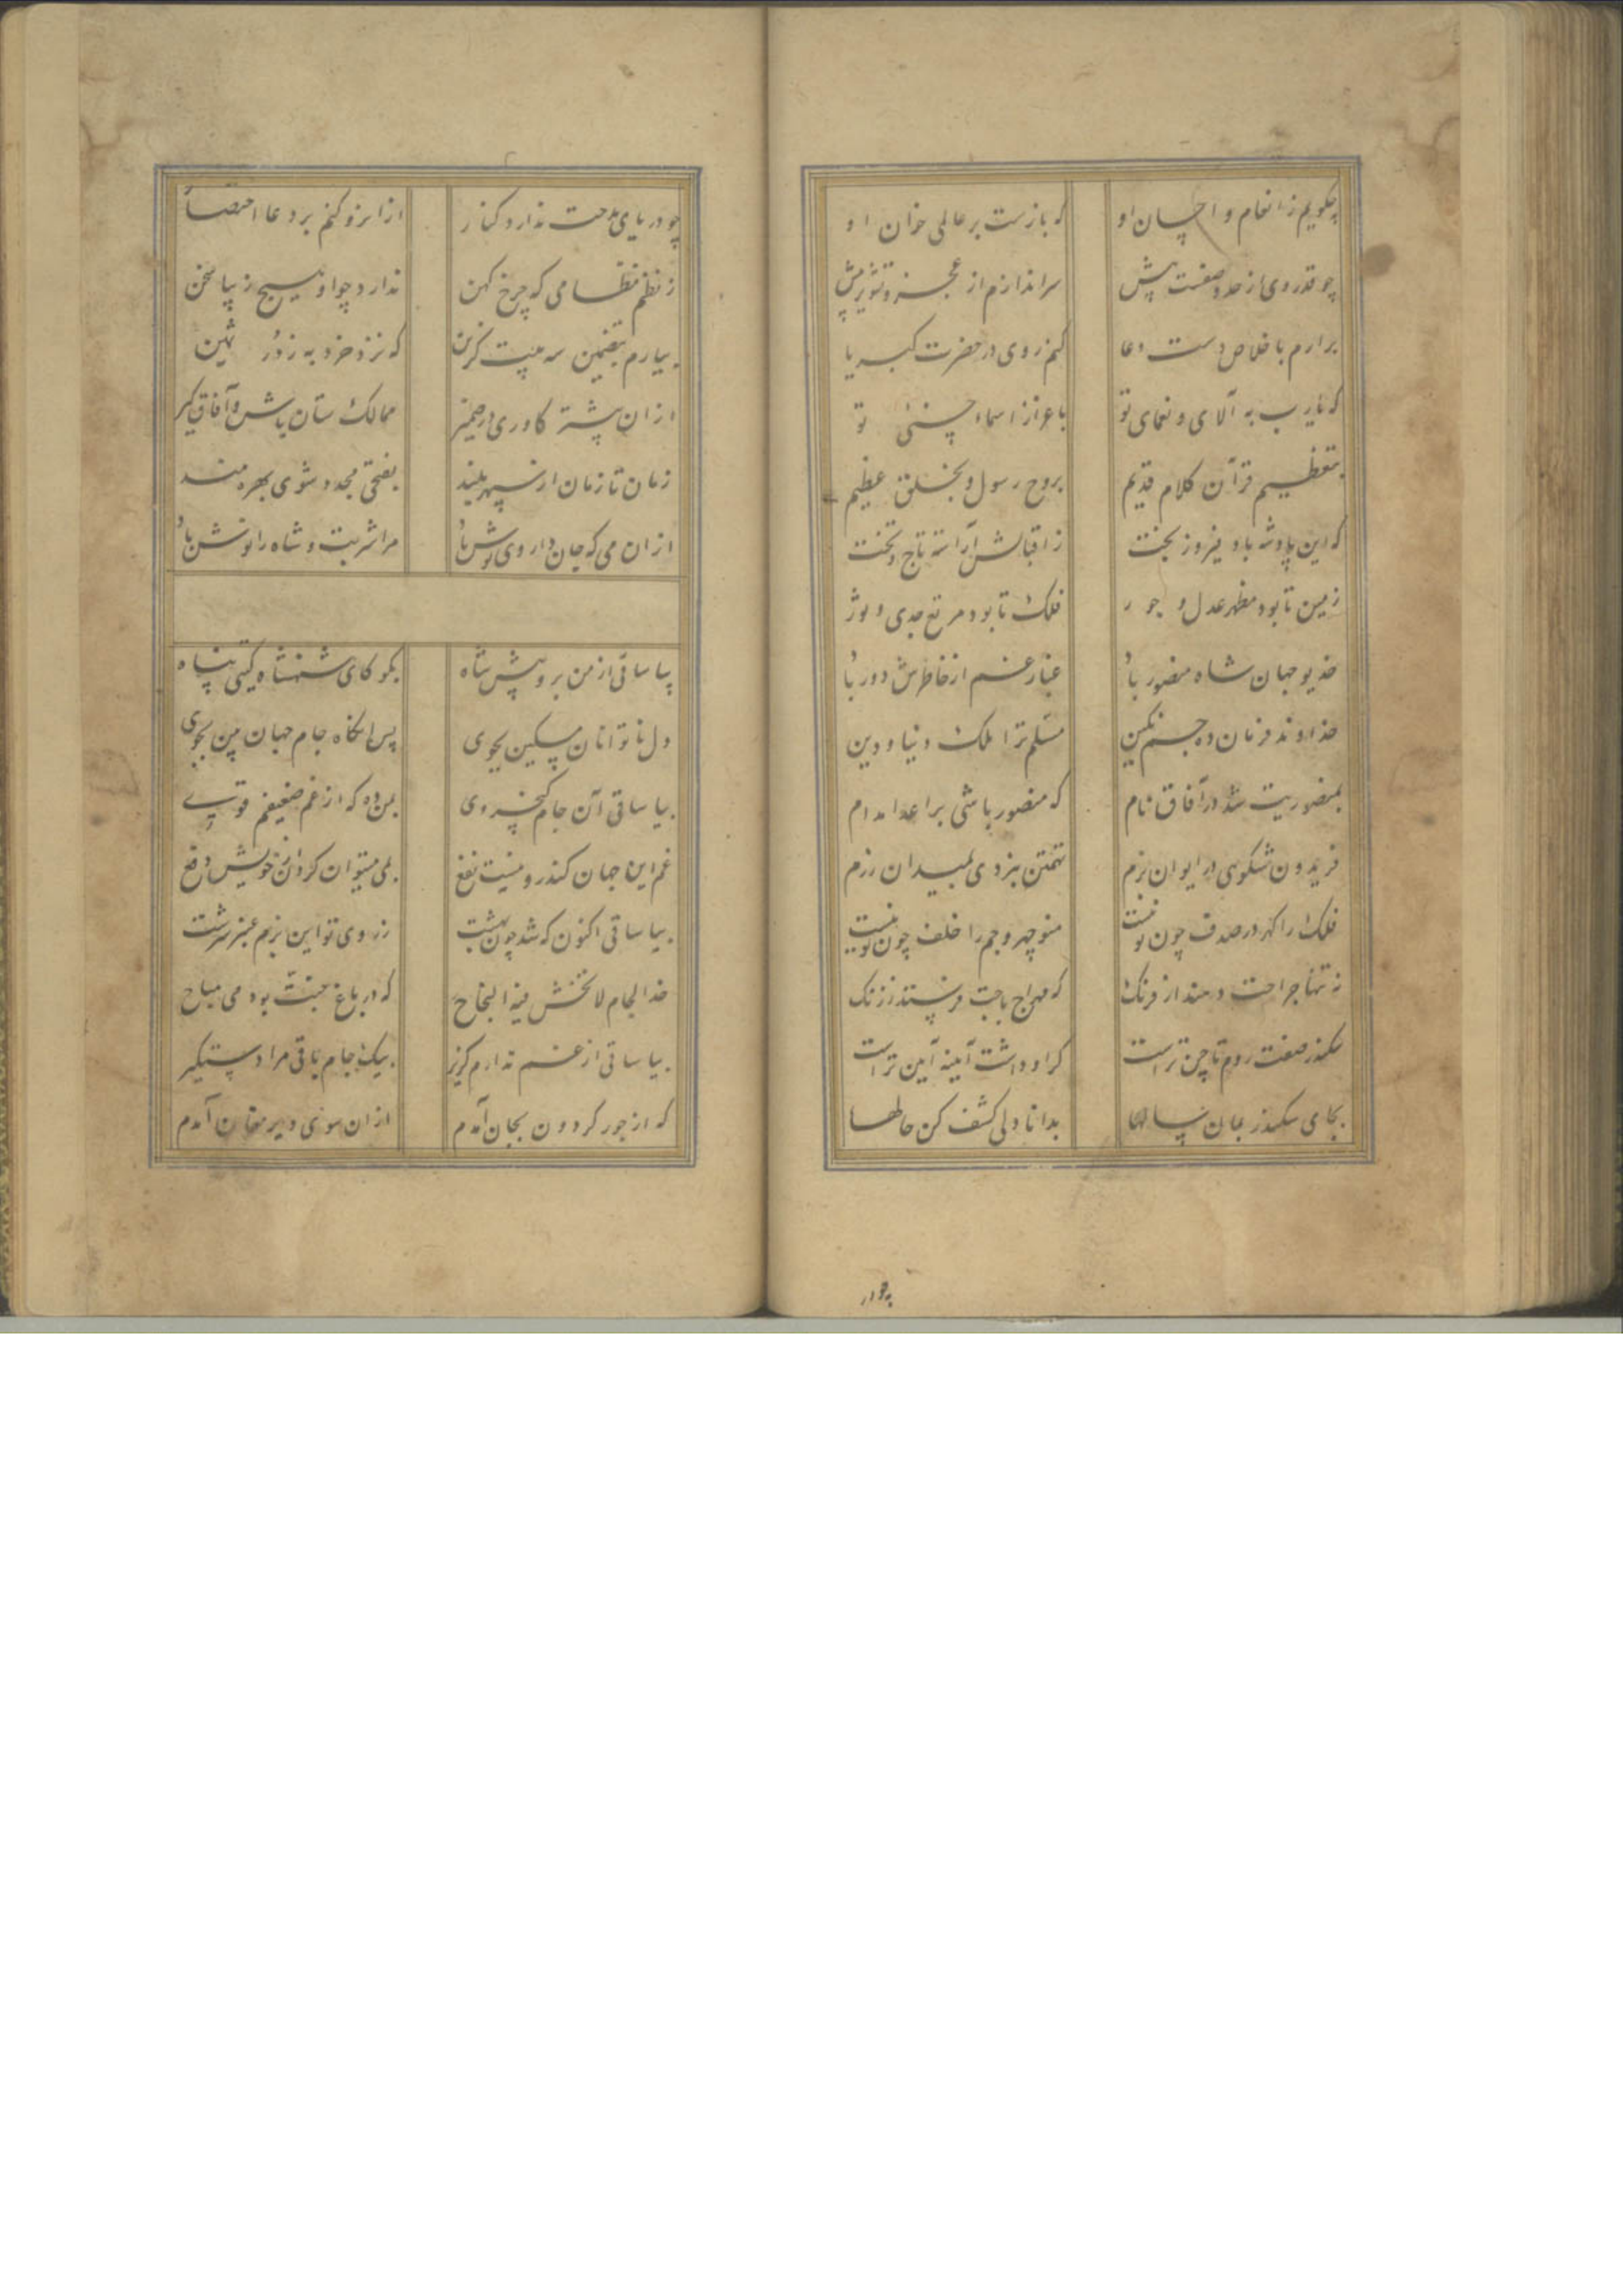 چکویم ز انعام و احسان او که بازست بر عالمی خوان او
چو قدر وی از حد وصفست پیش سر اندازم از عجز و تشویر پیش
برارم باخلاص دست دعا کنم روی در حضرت کبریا
که یارب به آلای و نعمای تو باعزاز اسماء حسنی تو
بتعظیم قرآن کلام قدیم بروح رسول و بخلق عظیم
که این پادشه باد فیروز بخت ز اقبالش آراسته تاج و تخت
زمین تا بود مظهر عدل و جور فلک تا بود مرتع جدی و ثور
خدیو جهان شاه منصور باد غبار غم از خاطرش دور باد
خداوند فرمان ده جم نکین مسلم ترا ملک دنیا و دین
بمنصوریت شد در آفاق نام که منصور باشی بر اعدا مدام
فریدون شکوهی در ایوان بزم تهمتن نبردی بمیدان رزم
فلک را کهر در صدف چون تو نیست منوچهر و جم را خلف چون تو نیست
نه تنها خراجت دهند از فرنک که مهراج باجت فرستد ز زنک
سکندر صفت روم تا چین تراست کر او داشت آیینه آیین تراست
بجای سکندر بمان سالها بدانا دلی کشف کن حالها
چو دریای مدحت ندارد کنار از ایزو کنم بر دعا اختصار
ز نظم نظامی که چرخ کهن ندارد چو او هیچ زیبا سخن
بیارم بتضمین سه بیت کزین که نزد خرد به ز در ثمین
از آن پیشتر کاوری در ضمیر ممالک ستان باش و آفاق کیر
زمان تا زمان از سپهر بلند بفتحی مجدد شوی بهره مند
از آن می که جان داروی هوش باد مرا شربت و شاه را نوش باد
بیا ساقی از من برو پیش شاه بکو کای شهنشاه کیتی پناه
دل ناتوانان مسکین بجوی پس آنکاه جام جهان بین بجوی
بیا ساقی آن جام کیخسروی بمن ده که از غم ضعیفم قوی
غم این جهان کاندرو نیست نفع بمی میتوان کرد از خویش دفع
بیا ساقی اکنون که شد چون بهشت ز روی تو این بزم عنبر سرشت
خذ الجام لا تخش فیه الجناح که در باغ جنت بود می مباح
بیا ساقی از غم ندارم کزیر بیک جام باقی مرا دستکیر
که از جور کردون بجان آمدم از آن سوی دیر مغان آمدم